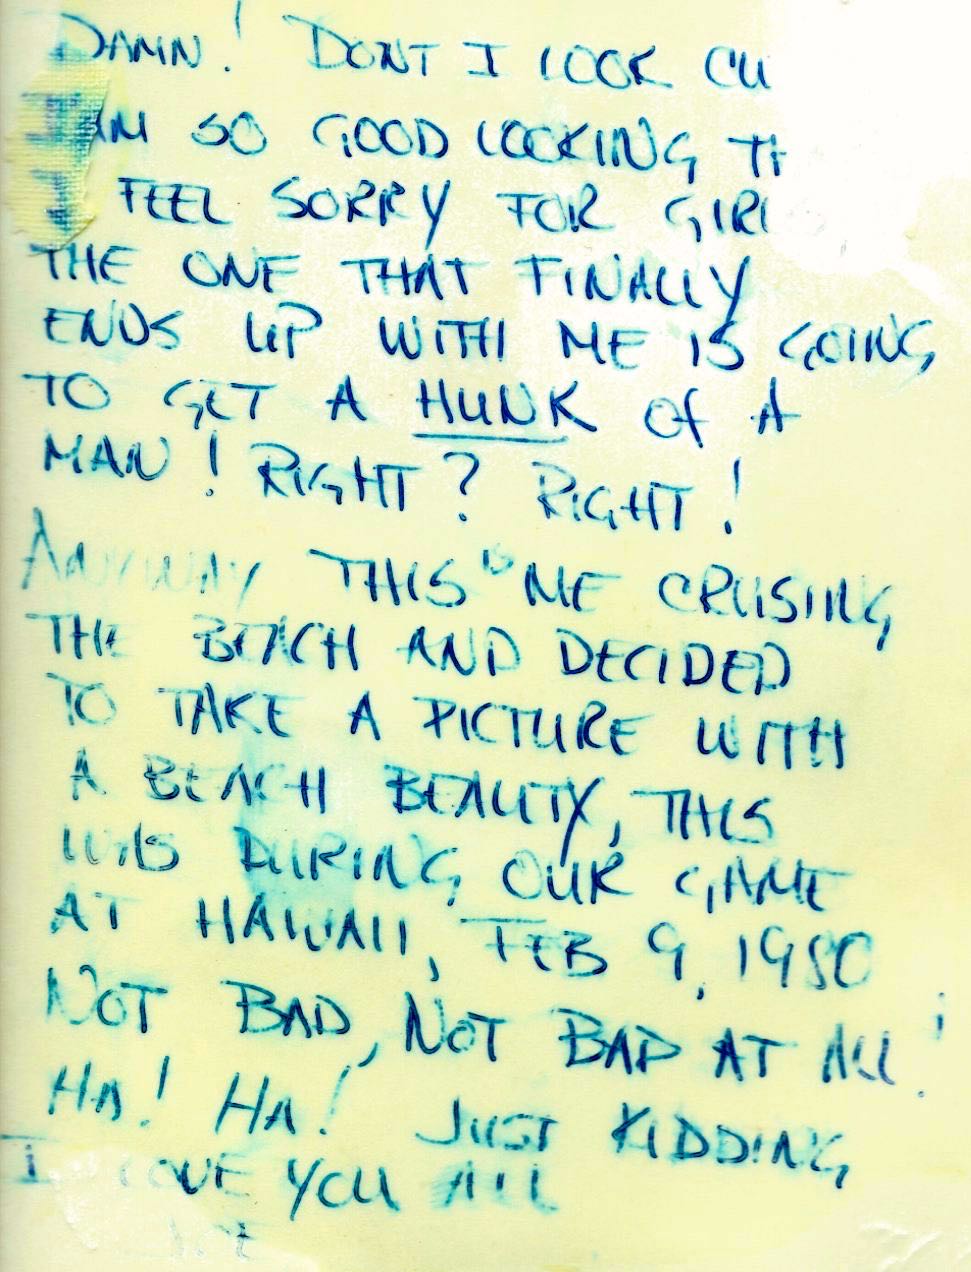 DAMN! DONT I LOOK CU
I AM SO GOOD LOOKING TH
I FEEL SORRY FOR GIRL
THE ONE THAT FINALLY
ENDS UP WITH ME IS GOING
TO GET A HUNK Of A
MAN! RIGHT? RIGHT!
ANYWAY THIS IS ME CRUSING
THE BEACH AND DECIDED
TO TAKE A PICTURE WITH
A BEACH BEAUTY, THIS
WAS DURING OUR GAME
AT HAWAII, FEB 9, 1980
NOT BAD, NOT BAD AT ALL!
HA! HA! JUST KIDDING
I LOVE YOU ALL